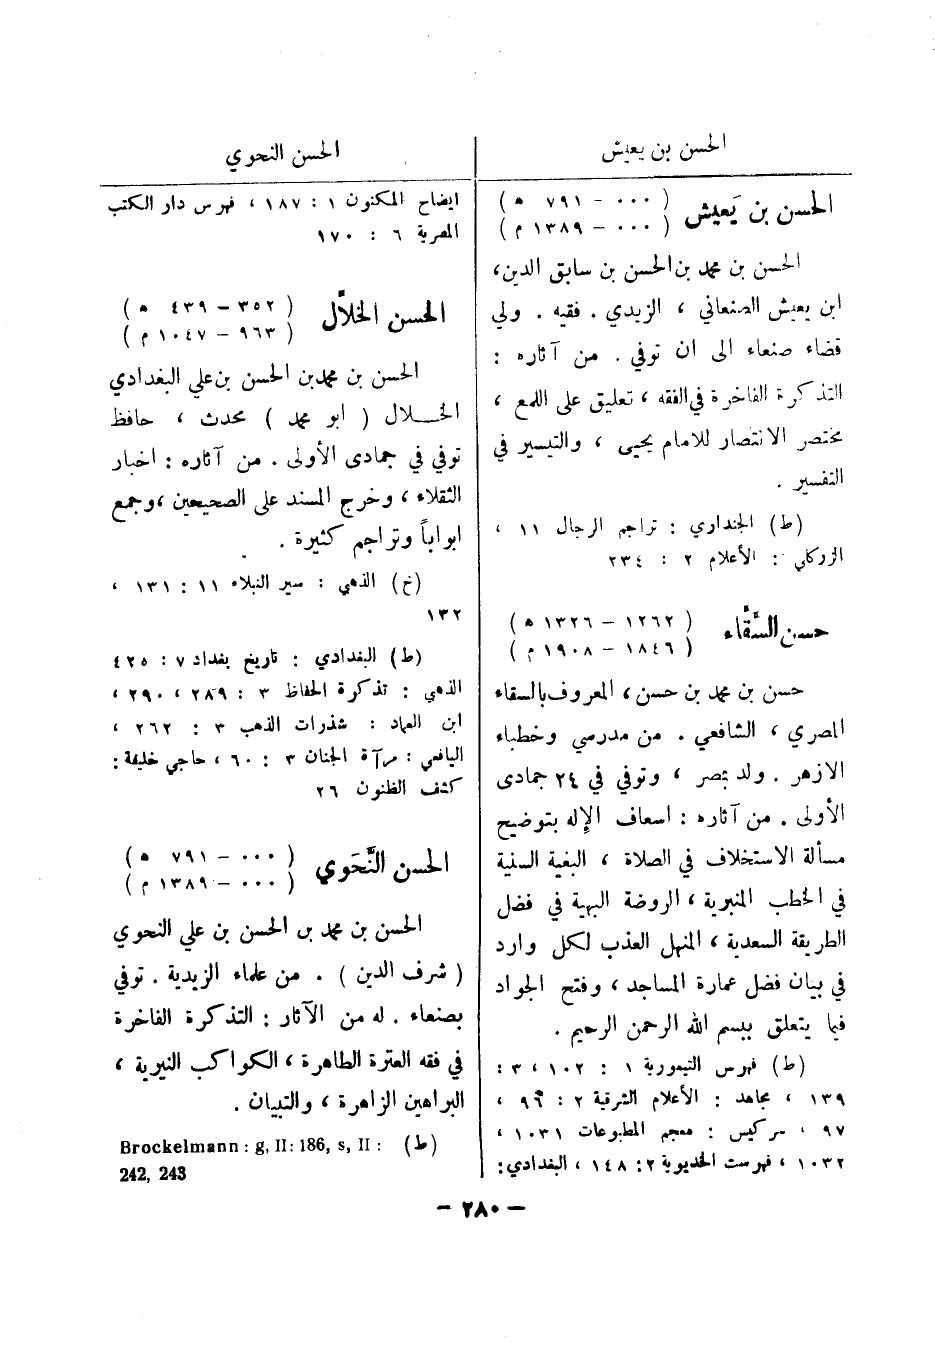 الحسن بن يعيش
الحسن بن يَعيش ( ٠٠٠ – ٧٩١ ه )
( ٠٠٠ – ١٣٨٩ م )
الحسن بن محمد بن الحسن بن سابق الدين،
ابن يعيش الصنعاني ، الزيدي . فقيه . ولي
قضاء صنعاء الى ان توفي . من آثاره :
التذكرة الفاخرة في الفقه ، تعليق على اللمع ،
مختصر الانتصار للامام يحيى ، والتيسير في
التفسير .
(ط) الجنداري : تراجم الرجال ١١ ،
الزركلي : الأعلام ٢ : ٢٣٤
حسن السَّقَّاء ( ١٢٦٢ – ١٣٢٦ ه )
( ١٨٤٦ – ١٩٠٨ م )
حسن بن محمد بن حسن ، المعروف بالسقاء
المصري ، الشافعي . من مدرسي وخطباء
الازهر . ولد بمصر ، وتوفي في ٢٤ جمادى
الأولى . من آثاره : اسعاف الإله بتوضيح
مسألة الاستخلاف في الصلاة ، البغية السنية
في الخطب المنبرية ، الروضة البهية في فضل
الطريقة السعدية ، المنهل العذب لكل وارد
في بيان فضل عمارة المساجد ، وفتح الجواد
فيما يتعلق ببسم الله الرحمن الرحيم .
(ط) فهرس التيمورية ١ : ١٠٢ ، ٣ :
١٣٩ ، مجاهد : الأعلام الشرقية ٢ : ٩٦ ،
٩٧ ، سركيس : معجم المطبوعات ١٠٣١ ،
١٠٣٢ ، فهرست الخديوية ٢ : ١٤٨ ، البغدادي :
الحسن النحوي
ايضاح المكنون ١ : ١٨٧ ، فهرس دار الكتب
المصرية ٦ : ١٧٠
الحسن الخلاَّل ( ٣٥٢ – ٤٣٩ ه )
( ٩٦٣ – ١٠٤٧ م )
الحسن بن محمد بن الحسن بن علي البغدادي
الخلال ( ابو محمد ) محدث ، حافظ
توفي في جمادى الأولى . من آثاره : اخبار
الثقلاء ، وخرج المسند على الصحيحين ، وجمع
ابواباً وتراجم كثيرة .
(خ) الذهبي : سير النبلاء ١١ : ١٣١ ،
١٣٢
(ط) البغدادي : تاريخ بغداد ٧ : ٤٢٥
الذهبي : تذكرة الحفاظ ٣ : ٢٨٩ ، ٢٩٠ ،
ابن العماد : شذرات الذهب ٣ : ٢٦٢ ،
اليافعي : مرآة الجنان ٣ : ٦٠ ، حاجي خليفة :
كشف الظنون ٢٦
الحسن النَّحَوي ( ٠٠٠ – ٧٩١ ه )
( ٠٠٠ – ١٣٨٩ م )
الحسن بن محمد بن الحسن بن علي النحوي
( شرف الدين ) . من علماء الزيدية . توفي
بصنعاء . له من الآثار : التذكرة الفاخرة
في فقه العترة الطاهرة ، الكواكب النيرية ،
البراهين الزاهرة ، والتبيان .
(ط) Brockelmann : g, II: 186, s, II :
242, 243
– ٢٨٠ –